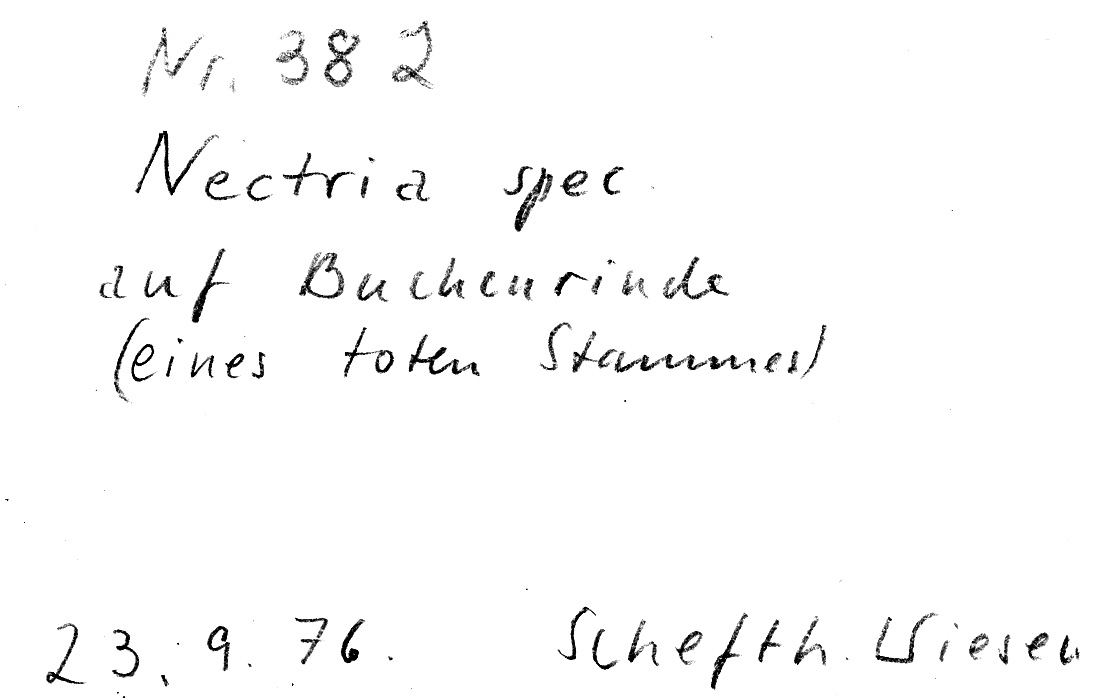 Nr. 382
Nectria spec.
auf Buchenrinde
(eines toten Stammes)
23. 9. 76. Schefth. Wiesen